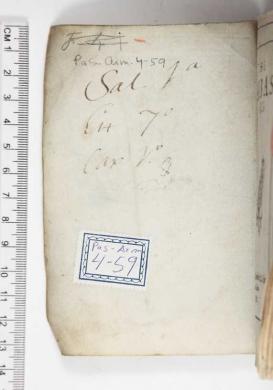 Pas- Arm. 4-59
Sal. 1ª
Est 7º
Cax. Nº 3
Pas- Arm
4-59
CM 1
2
3
4
5
6
7
8
9
10
11
12
13
14